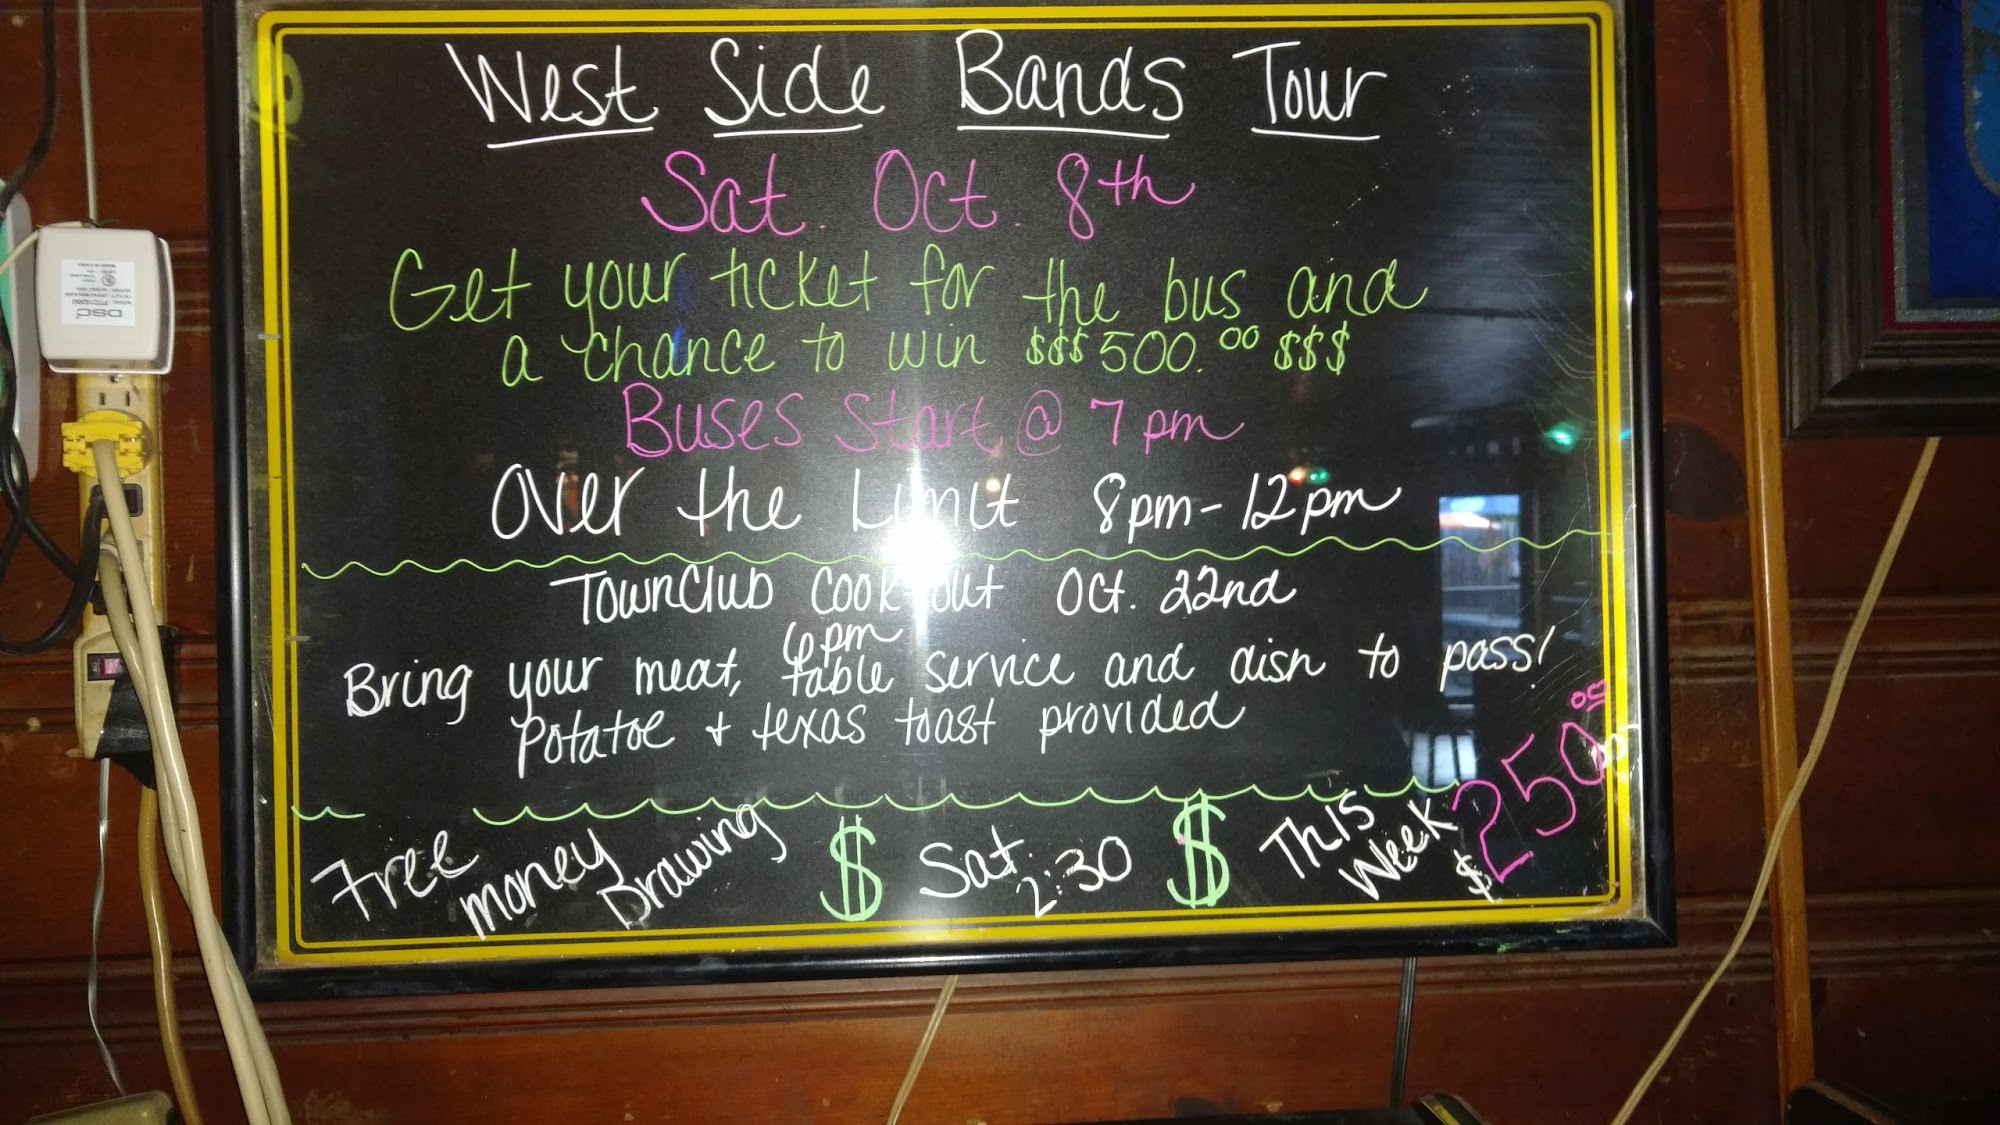 West Side Bands Tour
Sat. Oct. 8th
Get your ticket for the bus and
a chance to win $$$500.00 $$$
Buses Start @ 7pm
Over the Limit 8pm-12pm
TownClub Cook out Oct. 22nd
6pm
Bring your meat, table service and dish to pass!
Potatoe + texas toast provided
Free money Drawing $ Sat. 2:30 $ This Week $250.00
DSC